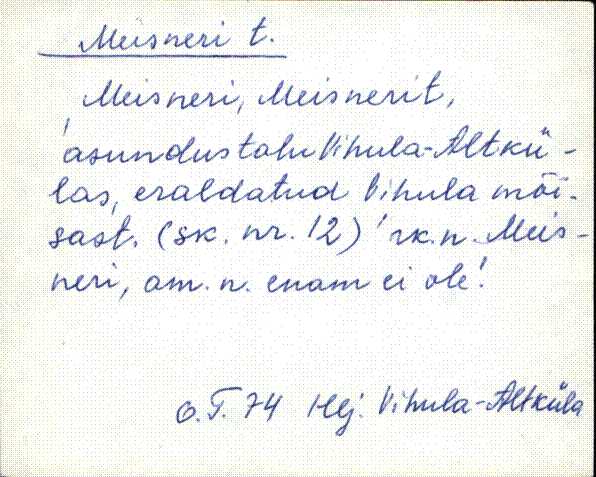 Meisneri t.
Meisneri, Meisnerit,
'asundustalu Vihula-Altkü-
las, eraldatud Vihula mõi-
sast. (sk. nr. 12)' rk.n. Meis-
neri, am. n. enam ei ole!
O.T. 74 Hlj. Vihula-Altküla